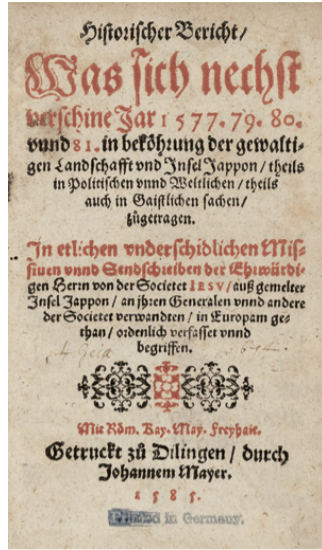 Historischer Bericht/
Was sich nechst
verschine Jar 1577. 79. 80.
vnnd 81. in bekőhrung der gewalti-
gen Landschafft vnd Insel Jappon / theils
in Politischen vnnd Weltlichen / theils
auch in Gaistlichen sachen/
zůgetragen.
In etlichen vnderschidlichen Mis-
siuen vnnd Sendschreiben der Ehrwürdi-
gen Herrn von der Societet IESV / auß gemelter
Insel Jappon / an jhren Generalen vnnd andere
der Societet verwandten / in Europam ge-
than / ordenlich verfasset vnnd
begriffen.
Mit Röm. Kay. May. Freyhait.
Getruckt zů Dilingen / durch
Johannem Mayer.
1585.
Printed in Germany.